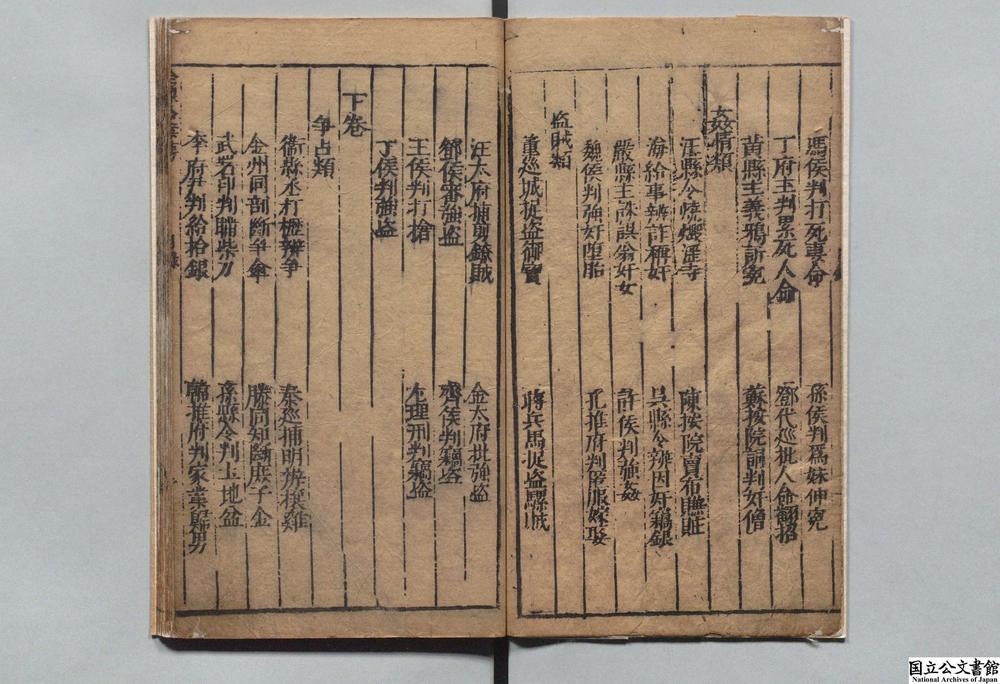 馮侯判打死妻命 孫侯判爲妹伸冤
丁府主判累死人命 鄧代巡批人命翻招
黃縣主義鴉訴冤 蘇按院詞判奸僧
姦情類
汪縣令燒燬淫寺 陳按院賣布賺贓
海給事辨詐稱奸 吳縣令辨因奸竊銀
嚴縣主誅誤翁奸女 許侯判強姦
魏侯判強奸墮胎 孔推府判匿服嫁娶
盜賊類
董巡城捉盜御寶 蔣兵馬捉盜騾賊
汪太府捕剪鐐賊 金太府批強盜
鄧侯審強盜 齊侯判竊盜
王侯判打搶 尤理刑判竊盜
丁侯判強盜
下卷
爭占類
衛縣丞打櫪辨爭 秦巡捕明辨攘雞
金州同剖斷爭傘 滕同知斷庶子金
武署印判瞞柴刀 孫縣令判土地盆
李府尹判給拾銀 韓推府判家業歸男
国立公文書館
National Archives of Japan